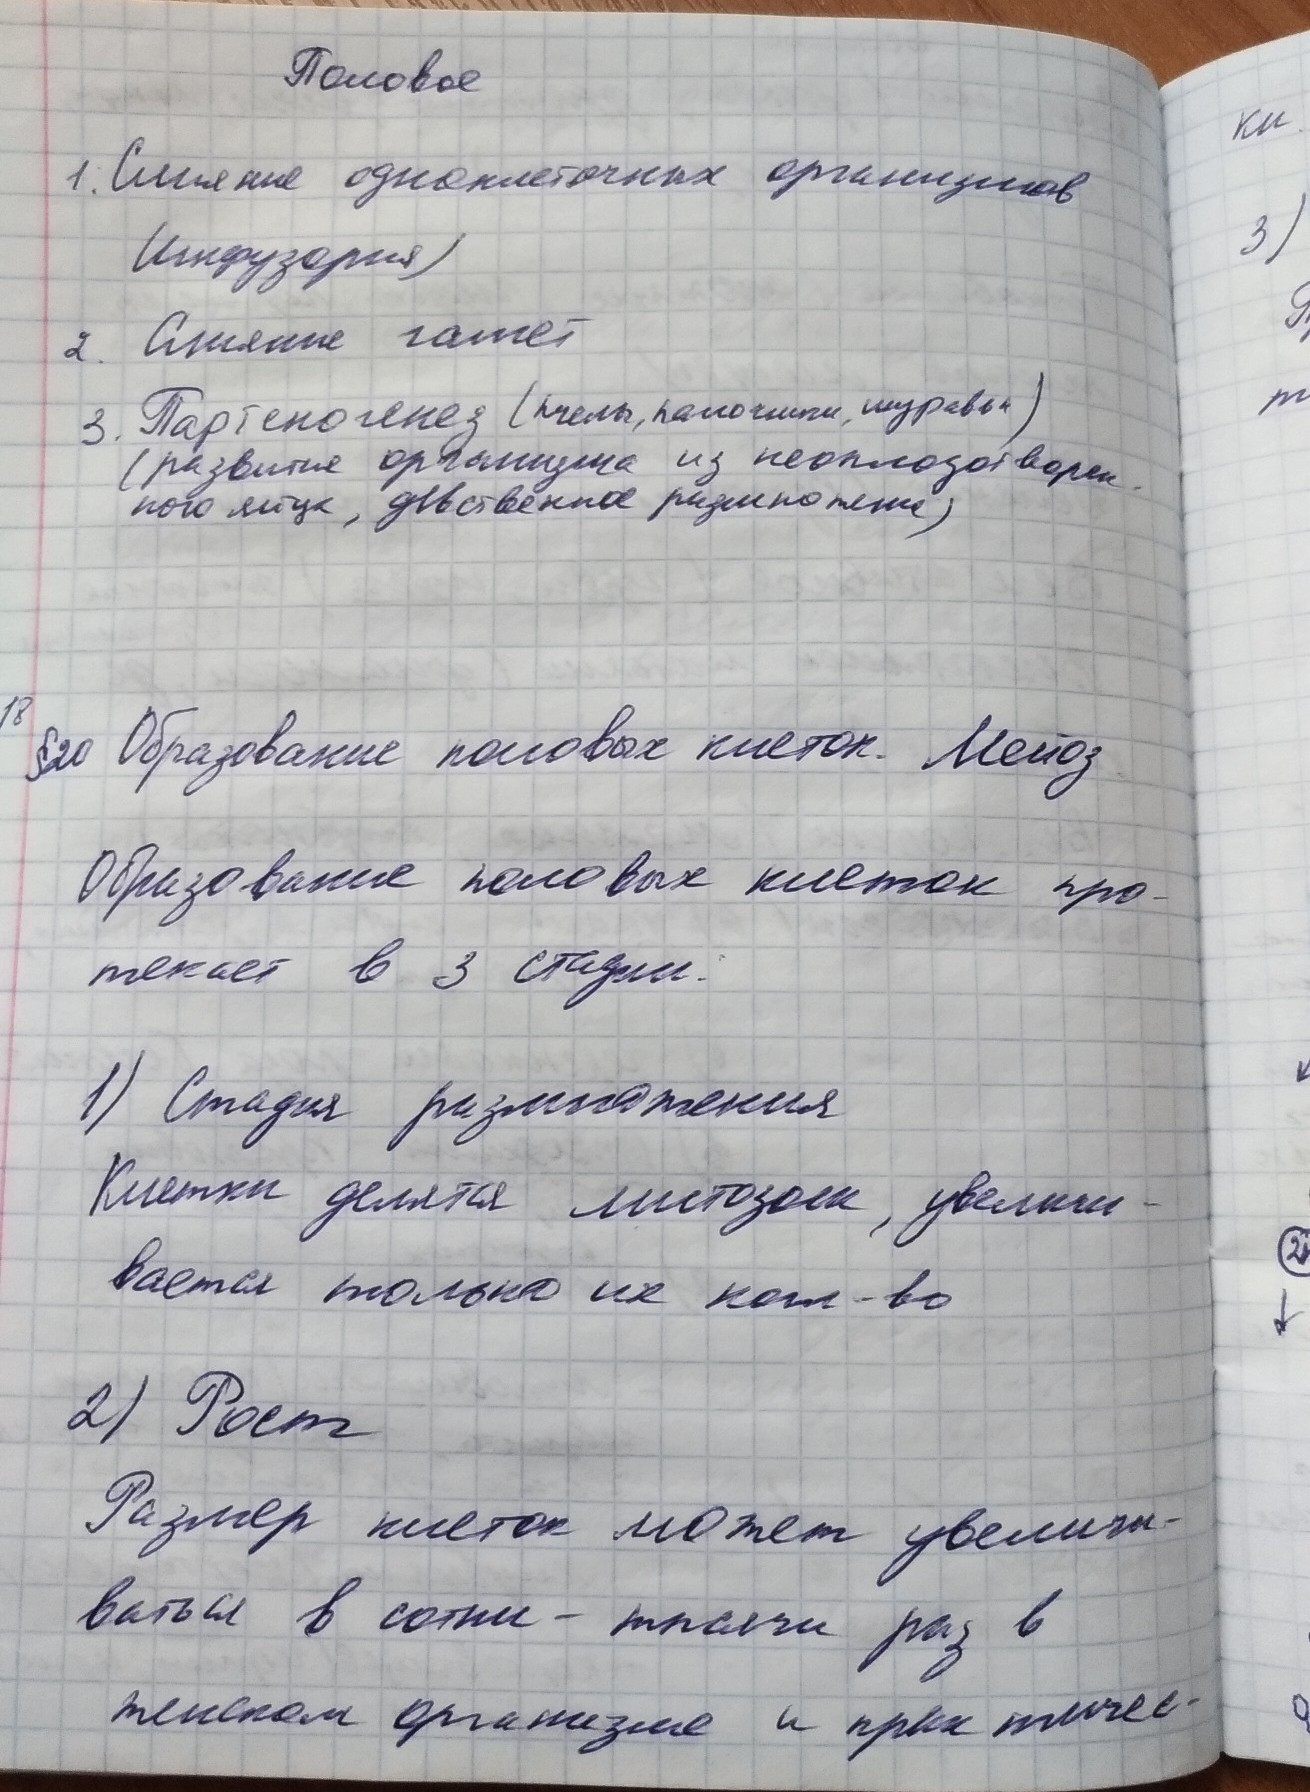 Половое
1. Слияние одноклеточных организмов
(Инфузория)
2. Слияние гамет
3. Партеногенез (пчелы, палочники, муравьи)
(развитие организма из неоплодотворен-
ного яйца, девственное размножение)
18
§20 Образование половых клеток. Мейоз
Образование половых клеток про-
текает в 3 стадии.
1) Стадия размножения
Клетки делятся митозом, увеличи-
вается только их кол-во
2) Рост
Размер клеток может увеличи-
ваться в сотни - тысячи раз в
женском организме и практичес-
ки
3)